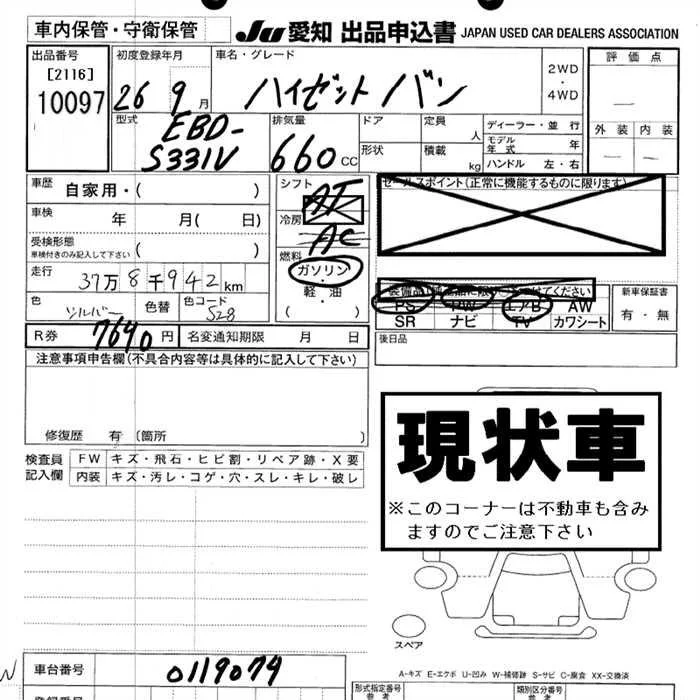 車内保管・守衛保管
JU 愛知 出品申込書 JAPAN USED CAR DEALERS ASSOCIATION
出品番号
[2116]
10097
初度登録年月
26 9月
車名・グレード
ハイゼット バン
2WD
・
4WD
評価点
外装 内装
型式
EBD-
S331V
排気量
660 CC
ドア
定員
人
形状
積載
kg
ディーラー・並行
モデル年式 年
ハンドル 左・右
車歴
自家用・( )
シフト
AT
冷房
AC
セールスポイント(正常に機能するものに限ります)
車検
年 月( 日)
受検形態
車検付きのみ記入して下さい ( )
燃料
ガソリン
・
軽・油
( )
走行
37万8千942km
色
シルバー
色替
色コード
S28
PS PW エアB AW
SR ナビ TV カワシート
新車保証書
有・無
R券 7640円 名変通知期限 月 日
後日品
注意事項申告欄(不具合内容等は具体的に記入して下さい)
修復歴 有 (箇所 )
検査員
記入欄
FW キズ・飛石・ヒビ割・リペア跡・X要
内装 キズ・汚レ・コゲ・穴・スレ・キレ・破レ
現状車
※このコーナーは不動車も含み
ますのでご注意下さい
スペア
A-キズ E-エクボ U-凹み W-補修跡 S-サビ C-腐食 XX-交換済
車台番号
0119079
形式指定番号
参考
類別区分番号
参考